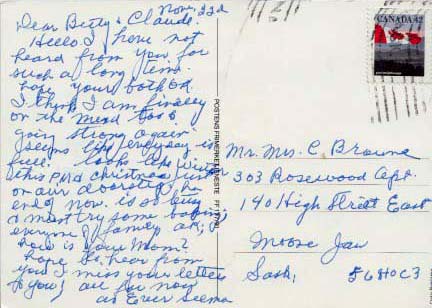 Nov. 22d
Dear Betty & Claude.
Hello. I have not
heard from you for
such a long time
hope your both O.K.
I think I am finally
on the mend too &
going strong again
seems like everyday is
full. looks like winter
this and Christmas just
on our doorstep he
end now. is so busy
& must try some baking
everyone & family ok,
how is your Mom?
hope to hear from
you I miss your letters
to you, all for now
as Ever Selma
POSTENS FRIMERKETJENESTE
CANADA 42
Mr. Mrs. C. Browne
303 Rosewood Apt.
140 High Street East
Moose Jaw
Sask, S6H0C3